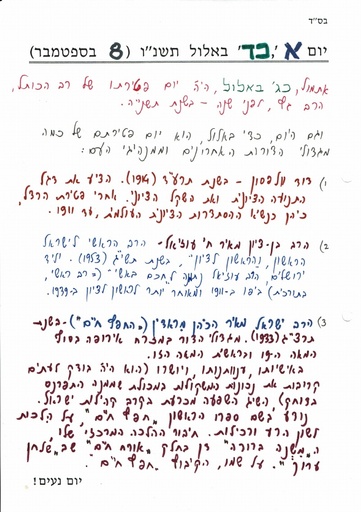 בס״ד
יום א׳, כד׳ באלול תשנ״ו (8 בספטמבר)
אתמול, כג׳ באלול, היה יום פטירתו של רב הכותל,
הרב גץ, לפני שנה - בשנת תשנ״ה.
וגם היום, כד׳ באלול, הוא יום פטירתם של כמה
מגדולי הדורות האחרונים וממנהיגי העם:
1) דוד וולפסון - בשנת תרע״ד (1914). הציע את דגל
התנועה הציונית ואת השקל הציוני. אחרי פטירת הרצל,
כיהן כנשיא ההסתדרות הציונית העולמית, עד 1911.
2) הרב בן-ציון מאיר חי עוזיאל - הרב הראשי לישראל
הראשון, והראשון לציון, בשנת תשי״ג (1953). יליד
ירושלים, הרב עוזיאל נתמנה ל״חכם באשי״ (״רב ראשי״,
בתורכית) ביפו ב-1911 ומאוחר יותר לראשון לציון ב-1939.
3) הרב ישראל מאיר הכהן מראדין (״החפץ חיים״) - בשנת
תרצ״ג (1933). מגדולי הדור במזרח אירופה בסוף
המאה ה-19 ובראשית המאה הזו.
באישיותו, וענוותנותו, ויושרו (הוא היה בודק לעתים
קרובות את נכונות המשקולות במכולת שממנה התפרנס
בדוחק) השיג השפעה מכרעת בקרב קהילות ישראל.
נודע בשם ספרו הראשון ״חפץ חיים״, על הלכות
לשון הרע ורכילות. חיבורו ההלכה המרכזי שלו,
ה״משנה ברורה״ דן בחלק ״אורח חיים״ שב״שלחן
ערוך״. על שמו, הקיבוץ ״חפץ חיים״.
יום נעים!